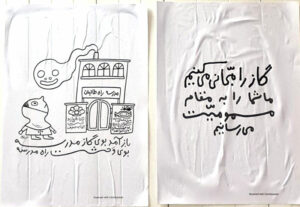 باز آمد بوی گاز مدرسه
بوی وحشت راه مدرسه
گاز را مجّانی می‌کنیم
ما شما را به مقام
مسمومیّت
می‌رسانیم